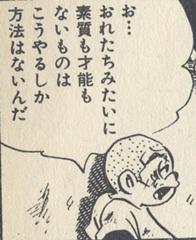 お…
おれたちみたいに
素質も才能も
ないものは
こうやるしか
方法はないんだ